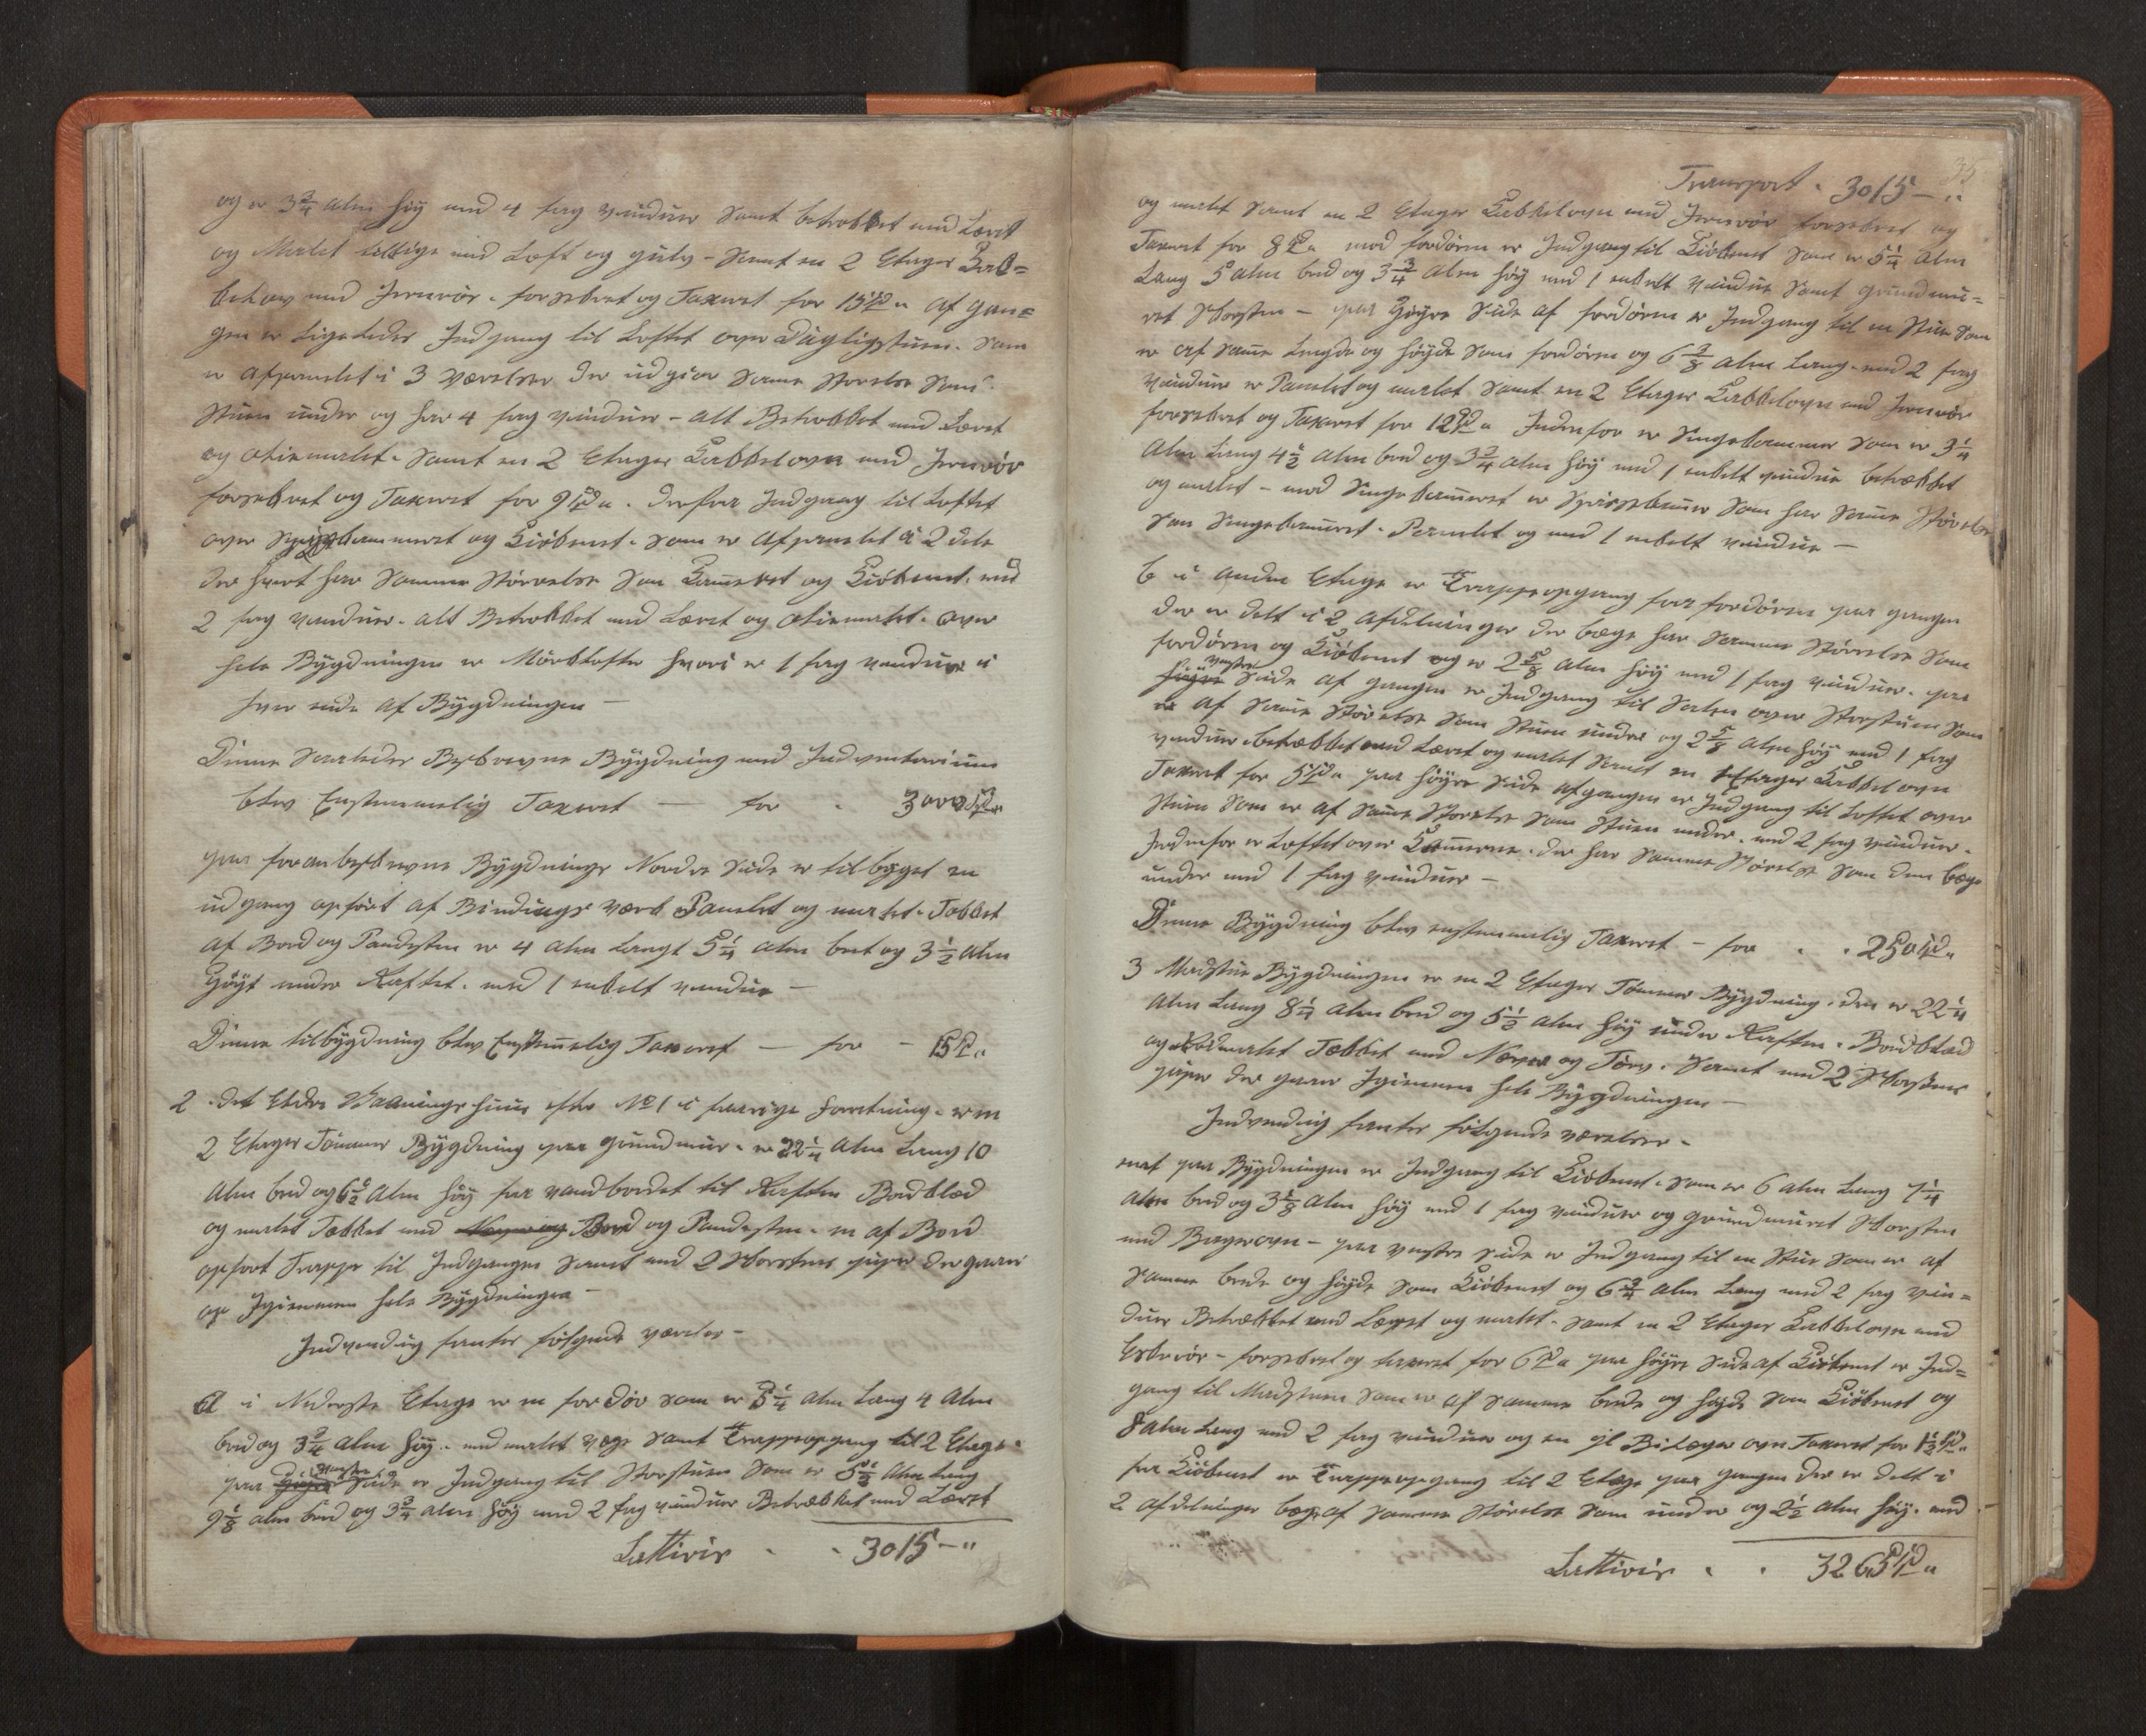 og er 3 3/4 alm høy med 4 fag vinduer samt betrækket med Lærit
og Malet tillige med Loft og gulv - samt en 2 Etager Kak=
kelovn med Jernrör. forsekret og Taxeret for 15 Spd " af gan=
gen er Ligeledes Indgang til Loftet over Dagligstuen. som
er afpanelet i 3 værelser der udgiør samme Størelse som
Stuen under og har 4 fag vinduer - alt Betrækket med Læret
og oliemalet. Samt en 2 Etager Kakkelovn med Jernrör
forsekret og Taxeret for 9 Spd ". derfra Indgang til Loftet
over Spisekammeret og Kiökenet. som er Afpanelet i 2 dele
der hvert har Samme Störrelse som Kammeret og Kiökenet. med
2 fag vinduer. alt Betrækket med Læret og oliemalet. over
hele Bÿgdningen er Mörklofter hvori er 1 fag vinduer i
hver ende af Bÿgdningen —
Denne saaledes Beskrevne Bÿgdning med Indventarium
blev Enstemmelig Taxeret — for - 3000 Spd "
paa foranbeskrevne Bÿgdnings Nordre side er tilbyget en
udgang opfört af Bindings værk Panelet og malet. Tækket
af Bord og Pandesten er 4 alm Langt 5 1/4 alm bret og 3 1/2 alm
høyt under Raftet. med 1 enkelt vindue —
Denne tilbÿgdning blev Enstemelig Taxeret — for - 15 Spd "
2. det Eldre Vaaningshuus efter No 1 i forrige Forretning. er en
2 Etager Tömmer Bÿgdning paa grundmuur. er 22 1/4 alm Lang 10
alm bred og 6 1/2 alm høÿ fra vandbordet til Raften Bordklæd
og malet Tækket med Bord og Pandesten. en af Bord
opfört Trappe til Indgangen samt med 2 Skorstens piper der gaar
op Igiennem hele Bÿgdningen —
Indvendig fantes fölgende værelser —
a i Nederste Etage er en for dör som er 5 1/4 alm Lang 4 alm
bred og 3 3/4 alm høÿ. med malet væge samt Trappeopgang til 2 Etage.
paa høÿre venstre side er Indgang til Storstuen som er 5 1/2 alm Lang
9 1/8 alm bred og 3 3/4 alm høÿ med 2 fag vinduer Betrækket med Læret
Lattiris - - 3015 — "
35
Transport - 3015 — "
og malet samt en 2 Etager Kakkelovn med Jernrör forsekret og
Taxeret for 8 Spd " mod fordören er Indgang til Kiökenet som er 5 1/4 alm
Lang 5 alm bred og 3 3/4 alm høÿ med 1 enkelt vindue samt grundmu=
ret Skorsten — paa høÿre side af fordören er Indgang til en Stue som
er af Samme Lengde og høÿde som fordören og 6 7/8 alm Lang. med 2 fag
vinduer er Panelet og malet samt en 2 Etager Kakkelovn med Jernrör
forsekret og Taxeret for 12 Spd " Indenfor er Sengekammer som er 3 1/4
alm Lang 4 1/2 alm bred og 3 3/4 alm høÿ med 1 enkelt vindue betrækket
og malet — mod Sengekammeret er Spisekammer som har Samme Störelse
som Sengekammeret. Panelet og med 1 enkelt vindue —
b i anden Etage er Trappeopgang fra fordören paa gangen
der er delt i 2 afdelninger der bege har Samme Störrelse som
fordören og Kiökenet og er 2 5/8 alm høÿ med 1 fag vinduer. paa
høÿre venstre side af gangen er Indgang til Salen over Storstuen som
er af Samme Störelse som Stuen under og 2 5/8 alm høÿ med 1 fag
vinduer betrækket med Læret og malet samt en Etager Kakkelovn
Taxeret for 5 Spd " paa høÿre side af gangen er Indgang til Loftet over
Stuen som er af Samme Störelse som Stuen under. med 2 fag vinduer.
Indenfor er Loftet over Kammerne. der har Samme Störelse som dem bege
under med 1 fag vinduer —
Denne Bÿgdning blev enstemmelig Taxeret — for . . 250 Spd "
3 Madstue Bÿgdningen er en 2 Etager Tömmer Bÿgdning. den er 22 1/4
alm Lang 8 1/4 alm bred og 5 1/2 alm høÿ under Raften. Bordklæd
og Rödmalet Tækket med Næver og Törv. Samt med 2 Skorstens
piper der gaar Igiennem hele Bÿgdningen —
Indvendig fantes fölgende værelser —
mit paa Bÿgdningen er Indgang til Kiökenet. som er 6 alm Lang 7 1/4
alm bred og 3 1/8 alm høÿ med 1 fag vinduer og grundmuret Skorsten
med Bagerovn — paa venstre side er Indgang til en Stue som er af
Samme brede og høÿde som Kiökenet og 6 3/4 alm Lang med 2 fag vin=
duer Betrækket med Læret og malet. samt en 2 Etager Kakkelovn med
— forsekret og taxeret for 6 Spd " paa høÿre Side af Kiökenet er Ind=
gang til Madstuen som er af Samme brede og høÿde som Kiökenet og
8 alm Lang med 2 fag vinduer og en gl Bilægger ovn Taxeret for 1 1/2 Spd "
fra Kiökenet er Trappeopgang til 2 Etage paa gangen der er delt i
2 afdelninger bege af Samme Störelse som under og 2 1/2 alm høÿ. med
Lattiris . . 3265 Spd "